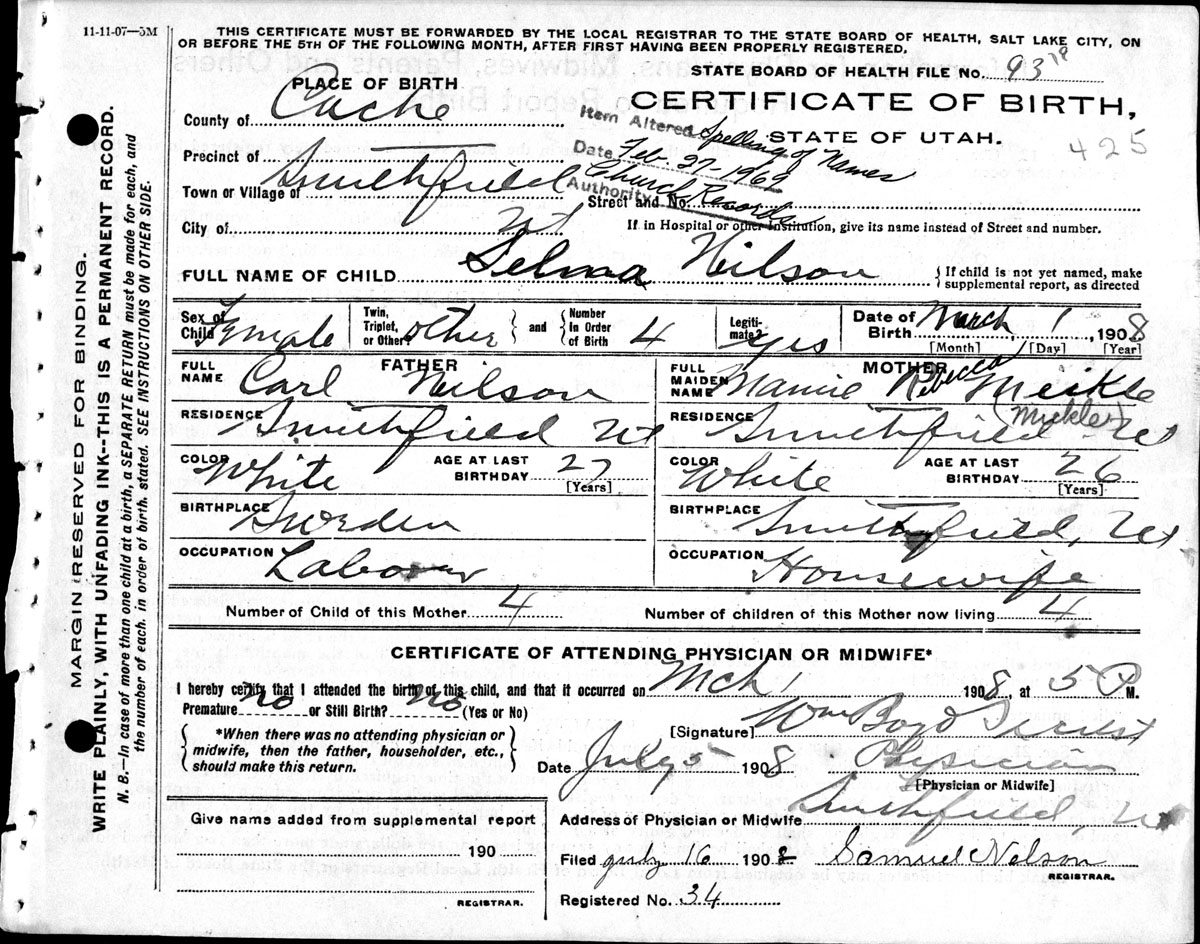 11-11-07—5M
THIS CERTIFICATE MUST BE FORWARDED BY THE LOCAL REGISTRAR TO THE STATE BOARD OF HEALTH, SALT LAKE CITY, ON
OR BEFORE THE 5TH OF THE FOLLOWING MONTH, AFTER FIRST HAVING BEEN PROPERLY REGISTERED.
STATE BOARD OF HEALTH FILE No. 93
PLACE OF BIRTH
CERTIFICATE OF BIRTH,
STATE OF UTAH.
425
County of Cache
Item Altered Spelling of Names
Date Feb. 27-1969
Authority Church Records
Precinct of
Town or Village of Smithfield
Street and No.
City of Ut
If in Hospital or other Institution, give its name instead of Street and number.
FULL NAME OF CHILD Selma Neilson
{If child is not yet named, make
supplemental report, as directed
Sex of Child Female
Twin, Triplet, or Other? other
and
Number In Order of Birth 4
Legiti- mate? yes
Date of Birth March 1, 1908
[Month] [Day] [Year]
FATHER
FULL NAME Carl Neilson
RESIDENCE Smithfield Ut
COLOR White
AGE AT LAST BIRTHDAY 27
[Years]
BIRTHPLACE Sweden
OCCUPATION Laborer
MOTHER
FULL MAIDEN NAME Mamie Rebecca Meikle
(Mickler)
RESIDENCE Smithfield Ut
COLOR White
AGE AT LAST BIRTHDAY 26
[Years]
BIRTHPLACE Smithfield, Ut
OCCUPATION Housewife
Number of Child of this Mother 4
Number of children of this Mother now living 4
CERTIFICATE OF ATTENDING PHYSICIAN OR MIDWIFE*
I hereby certify that I attended the birth of this child, and that it occurred on Mch 1 1908, at 5 P M.
Premature No or Still Birth? No (Yes or No)
{*When there was no attending physician or
midwife, then the father, householder, etc.,
should make this return.}
[Signature] Wm Boyd
Date July 5 1908
Physician
[Physician or Midwife]
Address of Physician or Midwife Smithfield, Ut
Filed July 16 1908 Samuel Nelson
REGISTRAR.
Registered No. 34
Give name added from supplemental report
190
REGISTRAR.
MARGIN RESERVED FOR BINDING.
WRITE PLAINLY, WITH UNFADING INK--THIS IS A PERMANENT RECORD.
N. B.—In case of more than one child at a birth, a SEPARATE RETURN must be made for each, and
the number of each, in order of birth, stated. SEE INSTRUCTIONS ON OTHER SIDE.